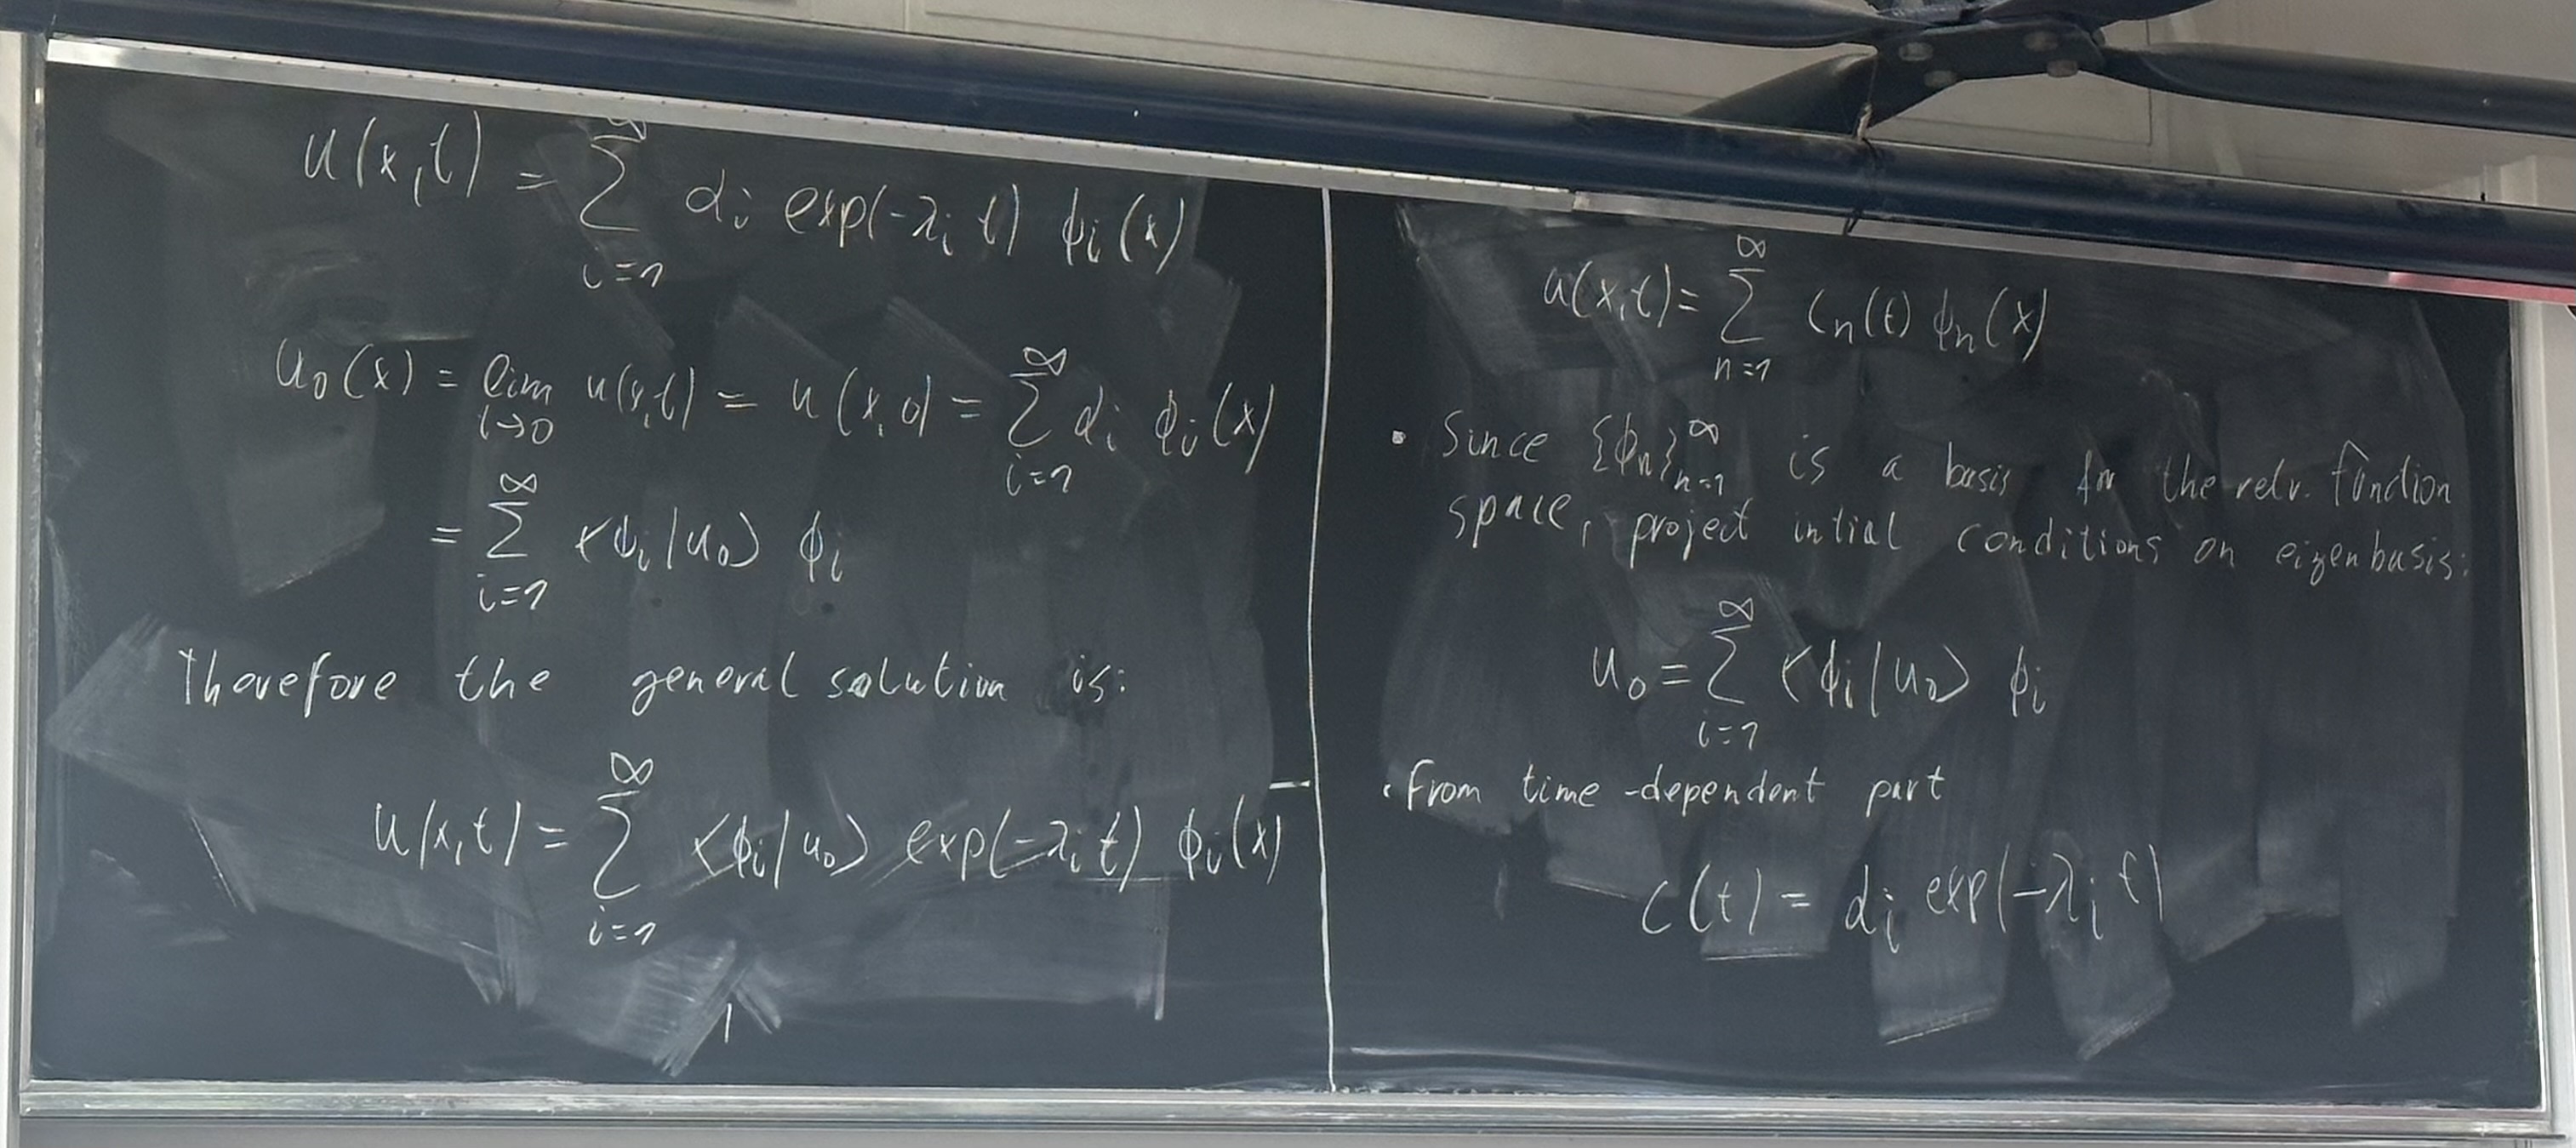 u(x,t) = ∑_{i=1}^{∞} d_i exp(-λ_i t) ϕ_i(x)
u_0(x) = lim_{t→0} u(x,t) = u(x,0) = ∑_{i=1}^{∞} d_i ϕ_i(x)
= ∑_{i=1}^{∞} <ϕ_i|u_0> ϕ_i
Therefore the general solution is:
u(x,t) = ∑_{i=1}^{∞} <ϕ_i|u_0> exp(-λ_i t) ϕ_i(x)
u(x,t) = ∑_{n=1}^{∞} c_n(t) ϕ_n(x)
• Since {ϕ_n}_{n=1}^{∞} is a basis for the relv. function
space, project intial conditions on eigenbasis:
u_0 = ∑_{i=1}^{∞} <ϕ_i|u_0> ϕ_i
• From time-dependent part
c(t) = d_i exp(-λ_i t)